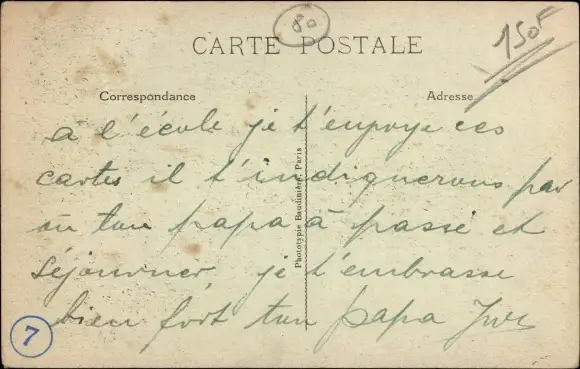 80
150F
CARTE POSTALE
Correspondance
Adresse
à l'école je t'envoye ces
cartes il t'indiquerons par
où ton papa à passé et
séjourner je t'embrasse
bien fort ton papa
Phototypie Baudinière, Paris
7